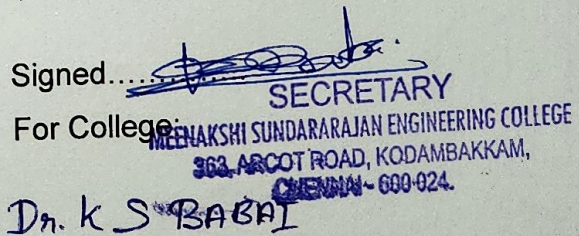 Signed......
SECRETARY
For College:
MEENAKSHI SUNDARARAJAN ENGINEERING COLLEGE
363, ARCOT ROAD, KODAMBAKKAM,
CHENNAI - 600 024.
Dr. K S BABAI